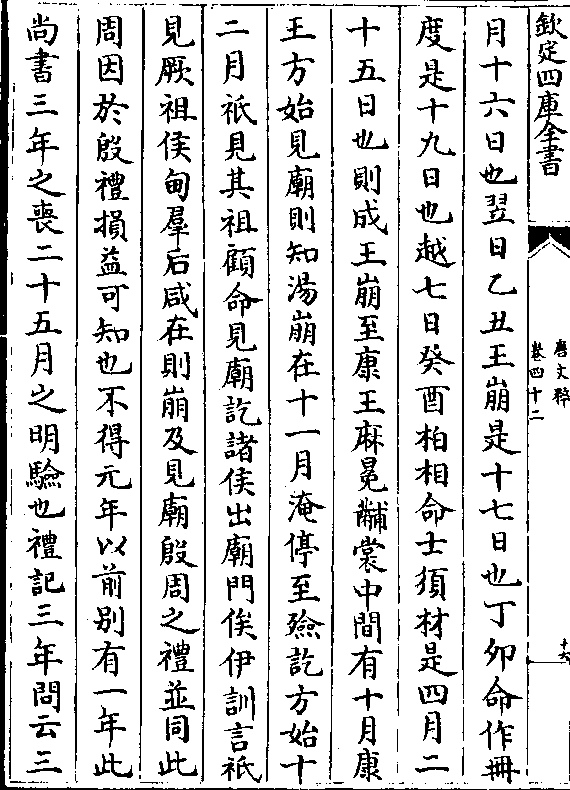 欽定四庫全書
唐文粹
卷四十二
十六
月十六日也翌日乙丑王崩是十七日也丁夘命作冊
度是十九日也越七日癸酉柏相命士須材是四月二
十五日也則成王崩至康王麻冕黼裳中間有十月康
王方始見廟則知湯崩在十一月淹停至殮訖方始十
二月祗見其祖顧命見廟訖諸侯出廟門俟伊訓言祗
見厥祖侯甸羣后咸在則崩及見廟殷周之禮並同此
周因於殷禮損益可知也不得元年以前别有一年此
尚書三年之喪二十五月之明驗也禮記三年問云三